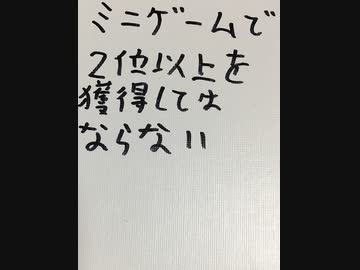 ミニゲームで
2位以上を
獲得しては
ならない